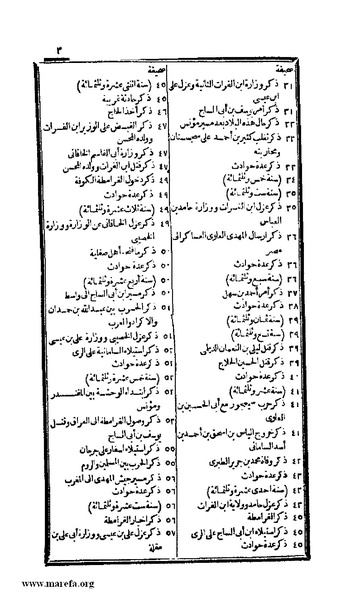 ٣
صحيفة
٣١ ذكر وزارة ابن الفرات الثانية وعزل على
ابن عيسى
٣١ ذكر أمر يوسف بن أبى الساج
٣٢ ذكر حال هذه البلاد بعد مسير مؤنس
٣٣ ذكر تغلب كثير بن أحمد على سجستان
ومحاربته
٣٣ ذكر عدة حوادث
٣٤ (سنة خمس وثلثمائة)
٣٥ (سنة ست وثلثمائة)
٣٥ ذكر عزل ابن الفرات ووزارة حامد بن
العباس
٣٦ ذكر ارسال المهدى العلوى العساكر الى
مصر
٣٦ ذكر عدة حوادث
٣٦ (سنة سبع وثلثمائة)
٣٧ ذكر أمر أحمد بن سهل
٣٨ ذكر عدة حوادث
٣٩ (سنة ثمان وثلثمائة)
٣٩ (سنة تسع وثلثمائة)
٣٩ ذكر قتل ليلى بن النعمان الديلمى
٣٩ ذكر قتل الحسين الحلاج
٤٠ ذكر عدة حوادث
٤١ (سنة عشر وثلثمائة)
٤١ ذكر حرب سيمجور مع أبى الحسين بن
العلوى
٤١ ذكر خروج الياس بن اسحق بن أحمد بن
أسد السامانى
٤٢ ذكر وفاة محمد بن جرير الطبرى
٤٣ ذكر عدة حوادث
٤٣ (سنة احدى عشرة وثلثمائة)
٤٣ ذكر عزل حامد وولاية ابن الفرات
٤٤ ذكر القرامطة
٤٥ ذكر استيلاء ابن أبى الساج على الرى
٤٥ ذكر عدة حوادث
صحيفة
٤٥ (سنة اثنتى عشرة وثلثمائة)
٤٥ ذكر حادثة غريبة
٤٦ ذكر أخذ الحاج
٤٧ ذكر القبض على الوزير ابن الفرات
وولده المحسن
٤٧ ذكر وزارة أبى القاسم الخاقانى
٤٧ ذكر قتل ابن الفرات وولده المحسن
٤٩ ذكر دخول القرامطة الكوفة
٤٩ ذكر عدة حوادث
٤٩ (سنة ثلاث عشرة وثلثمائة)
٤٩ ذكر عزل الخاقانى عن الوزارة ووزارة
الخصيبى
٥٠ ذكر ما فتحه أهل صقلية
٥٠ ذكر عدة حوادث
٥٠ (سنة أربع عشرة وثلثمائة)
٥٠ ذكر مسير ابن أبى الساج الى واسط
٥١ ذكر الحرب بين عبد الله بن حمدان
والاكراد والعرب
٥١ ذكر عزل الخصيبى ووزارة على بن عيسى
٥١ ذكر استيلاء السامانية على الرى
٥٢ ذكر عدة حوادث
٥٢ (سنة خمس عشرة وثلثمائة)
٥٢ ذكر ابتداء الوحشة بين المقتدر
ومؤنس
٥٣ ذكر وصول القرامطة الى العراق وقتل
يوسف بن أبى الساج
ذكر استيلاء اسفار على جرجان
ذكر الحرب بين المسلمين والروم
ذكر مسير جيش المهدى الى المغرب
ذكر عدة حوادث
(سنة ست عشرة وثلثمائة)
ذكر أخبار القرامطة
ذكر عزل على بن عيسى ووزارة أبى على بن
مقلة
www.marefa.org